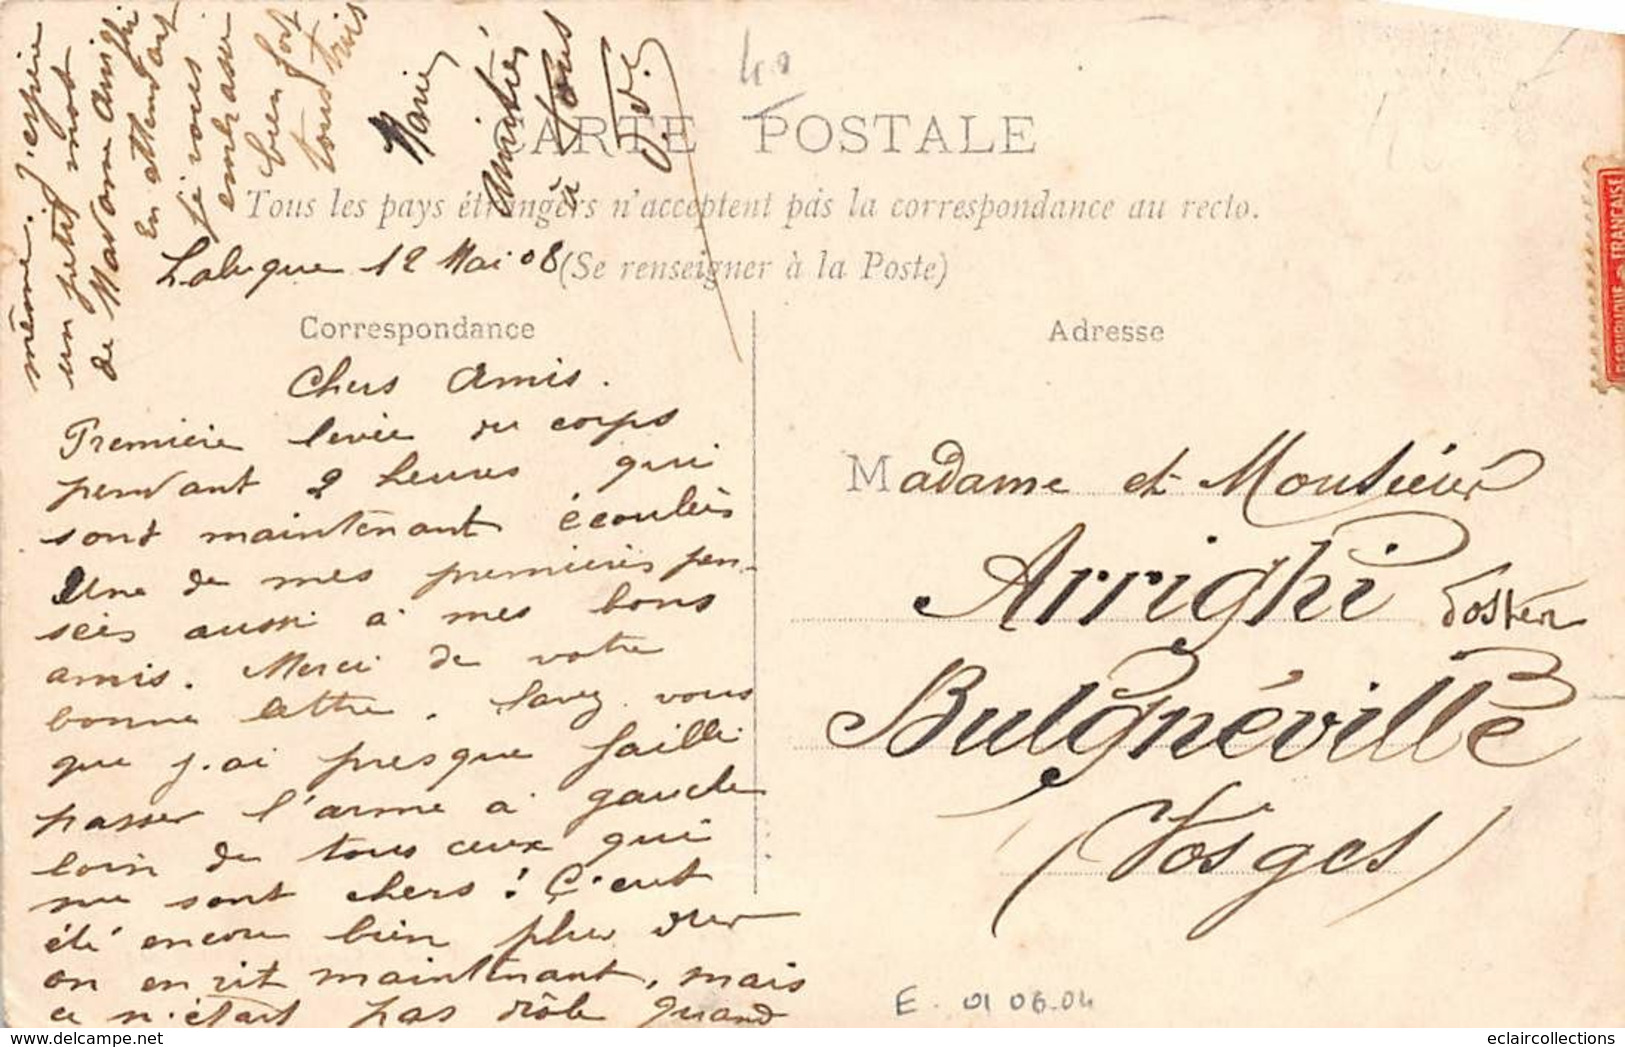 CARTE POSTALE
Tous les pays étrangers n'acceptent pas la correspondance au recto.
(Se renseigner à la Poste)
Labuque 12 Mai 08
Correspondance
Chers Amis.
Première levée du corps
pendant 2 heures qui
sont maintenant écoulées
Une de mes premières pen-
sées aussi à mes bons
amis. Merci de votre
bonne lettre. Savez-vous
que j'ai presque failli
passer l'arme à gauche
loin de tous ceux qui
me sont chers ! C'eut
été encore bien plus dur
on en rit maintenant, mais
ce n'était pas drôle quand
même. J'espère
un petit mot
de Madame Arrighi
En attendant
je vous
embrasse
bien fort
tous trois
Marie
Amitiés
à tous
Adresse
Madame et Monsieur
Arrighi
Bulgnéville
(Vosges)
REPUBLIQUE FRANCAISE
40
E. 01 06-04
eclaircollections